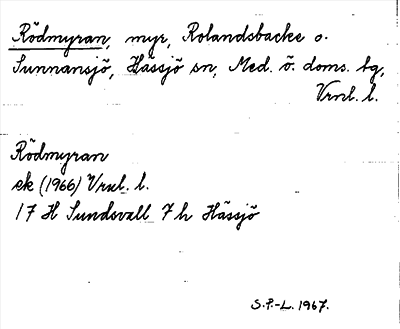 Rödmyran, myr, Rolandsbacke o.
Sunnansjö, Hässjö sn, Med. ö. doms. tg,
Vrnl. l.
Rödmyran
ek (1966) Vrnl. l.
17 H Sundsvall 7 h Hässjö
S.P.-L. 1967.